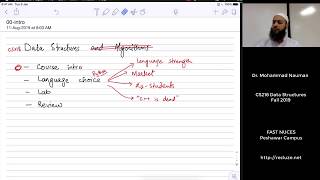 00-intro
11 Aug 2019 at 8:00 AM
CS218 Data Structures and Algorithms
- Course intro
- Language choice
Language strength
Market
Re-students
"C++ is dead"
- Lab
- Review
Dr. Mohammad Nauman
CS218 Data Structures
Fall 2019
FAST NUCES
Peshawar Campus
http://recluze.net